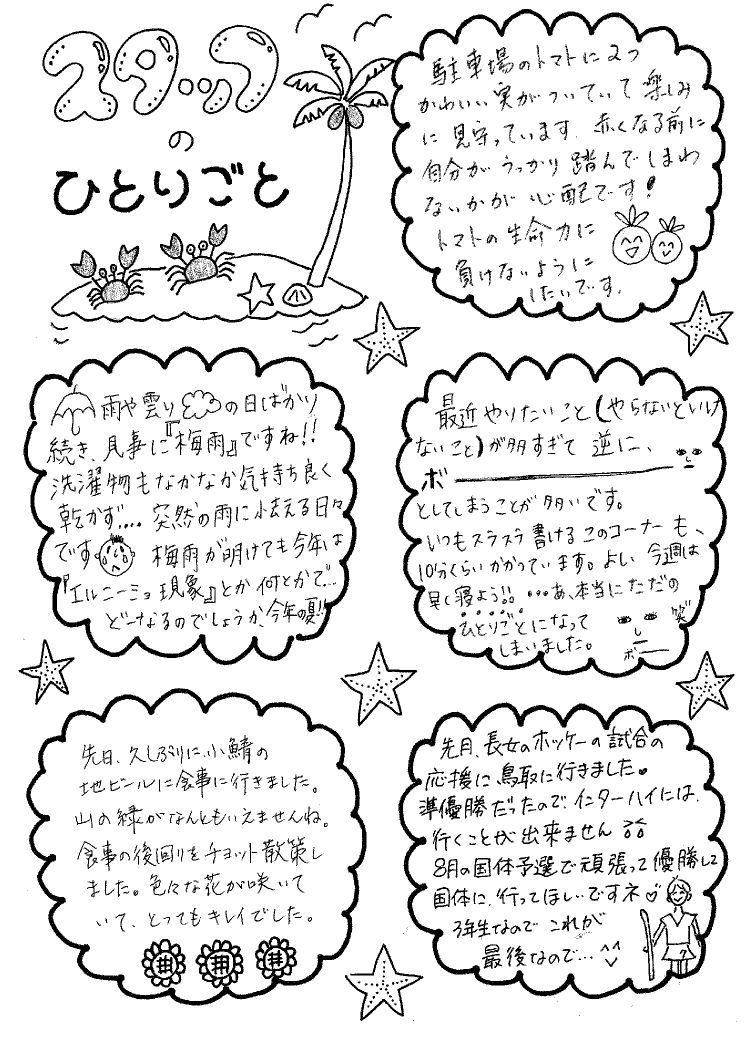 スタッフ
の
ひとりごと
駐車場のトマトに2つ
かわいい実がついていて楽しみ
に見守っています。赤くなる前に
自分がうっかり踏んでしまわ
ないかが心配です!
トマトの生命力に
負けないように
したいです。
雨や雲りの日ばかり
続き、見事に『梅雨』ですね!!
洗濯物もなかなか気持ち良く
乾かず…. 突然の雨に怯える日々
です。 梅雨が明けても今年は
『エルニーニョ現象』とか何とかで…
どーなるのでしょうか、今年の夏!!
最近やりたいこと(やらないといけ
ないこと)が多すぎて逆に、
ボーーーーーー
としてしまうことが多いです。
いつもスラスラ書けるこのコーナーも、
10分くらいかかっています。よし、今週は
早く寝よう!! …あ、本当にただの
ひとりごとになって
しまいました。
笑
ボー
先日、久しぶりに小鯖の
地ビールに食事に行きました。
山の緑がなんともいえませんね。
食事の後回りをチョット散策し
ました。色々な花が咲いて
いて、とってもキレイでした。
先月、長女のホッケーの試合の
応援に鳥取に行きました。
準優勝だったので、インターハイには、
行くことが出来ません
8月の国体予選で頑張って優勝して
国体に、行ってほしいですネ♡
3年生なので これが
最後なので…